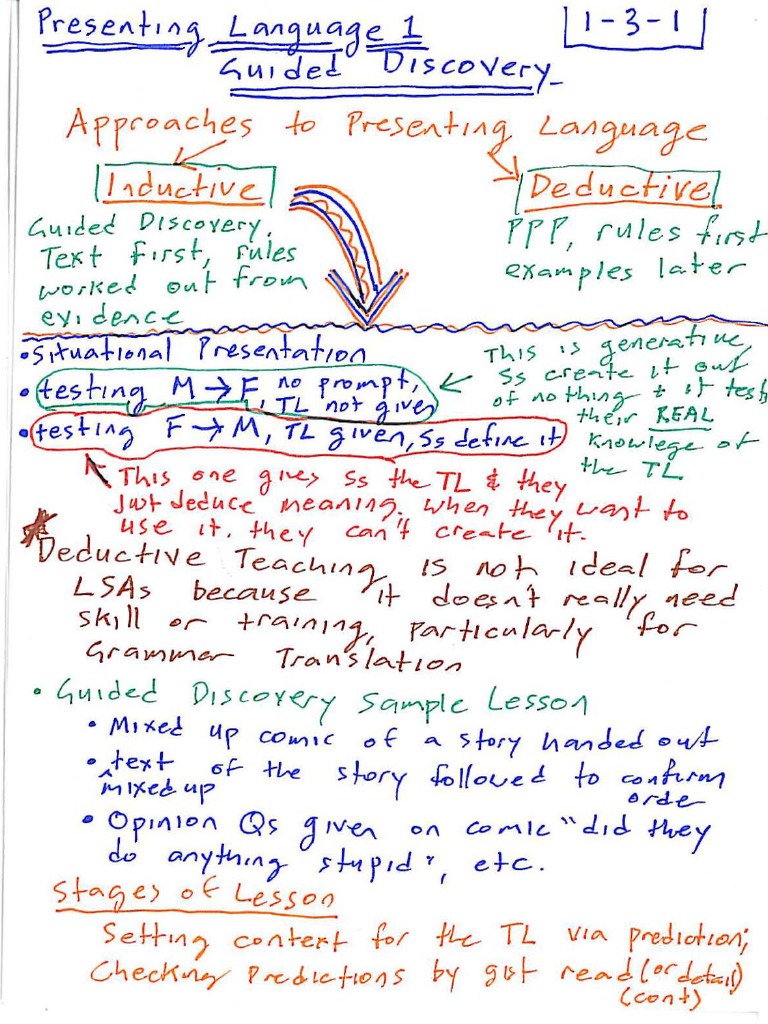 Presenting Language 1
1-3-1
Guided Discovery
Approaches to Presenting Language
Inductive
Deductive
Guided Discovery,
Text first, rules
worked out from
evidence
PPP, rules first
examples later
• Situational Presentation
• testing M → F no prompt,
TL not given
• testing F → M, TL given, Ss define it
This is generative,
Ss create it out
of nothing & it tests
their REAL
knowlege of
the TL
This one gives Ss the TL & they
Just deduce meaning. When they want to
use it, they can't create it.
* Deductive Teaching is not ideal for
LSAs because it doesn't really need
skill or training, particularly for
Grammar Translation
• Guided Discovery Sample Lesson
• Mixed up comic of a story handed out
• ^ text of the story followed to confirm
mixed up
order
• Opinion Qs given on comic "did they
do anything stupid", etc.
Stages of Lesson
Setting context for the TL via prediction;
Checking Predictions by gist read (or detail)
(cont)